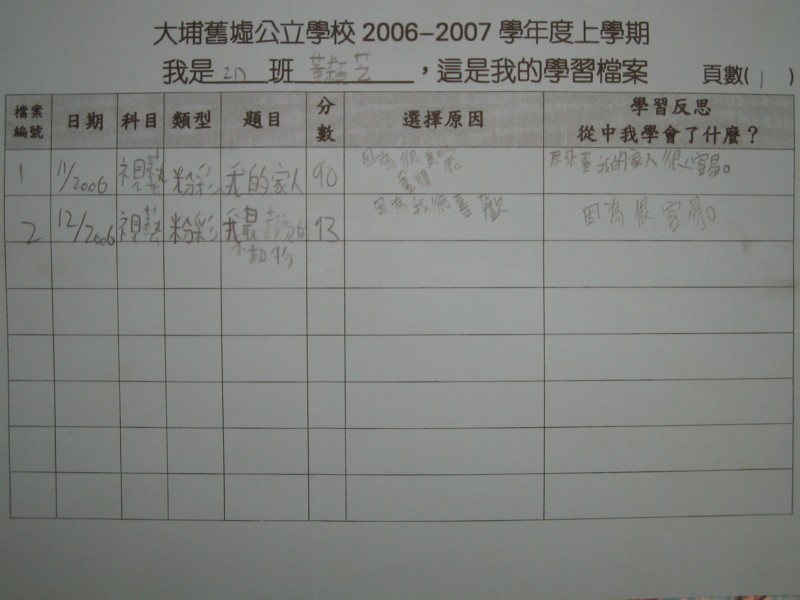 大埔舊墟公立學校 2006-2007 學年度上學期
我是 2D 班 ，這是我的學習檔案 頁數( 1 )
檔案編號 日期 科目 類型 題目 分數 選擇原因 學習反思 從中我學會了什麼？
1 11/2006 視藝 粉彩 我的家人 90 因為很 原來畫我的家人很容易。
2 12/2006 視藝 粉彩 我最 的小動物 93 因為我很喜歡 因為很容易。